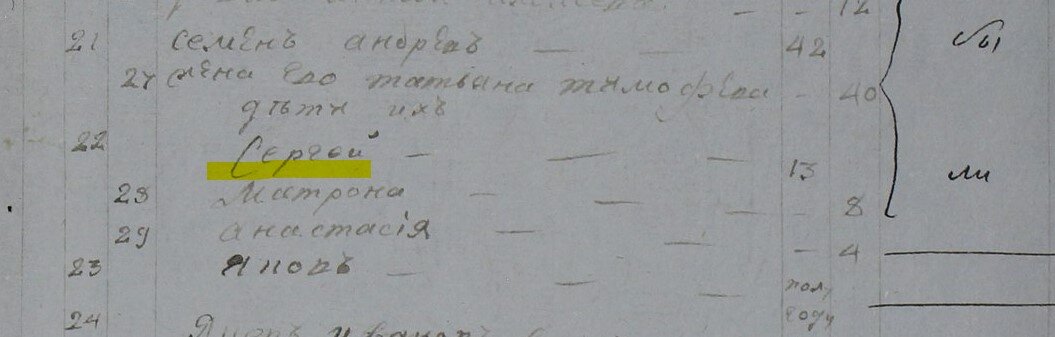 12
21 Семенъ андреевъ — — 42
27 жена его татьяна тимофеева - 40
дѣти ихъ
22 Сергей — — — 13
28 Матрона — — — - 8
29 анастасія — — — 4
23 Яковъ — — — полу году
24
бы
ли